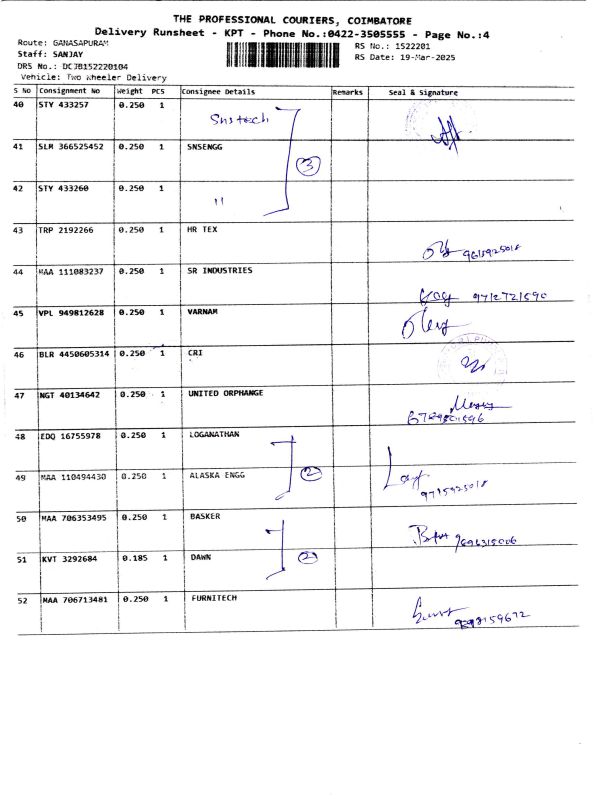 THE PROFESSIONAL COURIERS, COIMBATORE
Delivery Runsheet - KPT - Phone No.:0422-3505555 - Page No.:4
Route: GANASAPURAM
Staff: SANJAY
DRS No.: DCJB152220104
Vehicle: Two Wheeler Delivery
RS No.: 1522201
RS Date: 19-Mar-2025
S No Consignment No Weight PCS Consignee Details Remarks Seal & Signature
40 STY 433257 0.250 1 Sns tech
41 SLM 366525452 0.250 1 SNSENGG
3
42 STY 433260 0.250 1 11
43 TRP 2192266 0.250 1 HR TEX
9615925018
44 MAA 111083237 0.250 1 SR INDUSTRIES
9712721590
45 VPL 949812628 0.250 1 VARNAM
46 BLR 4450605314 0.250 1 CRI
47 NGT 40134642 0.250 1 UNITED ORPHANGE
48 EDQ 16755978 0.250 1 LOGANATHAN
2
49 MAA 110494430 0.250 1 ALASKA ENGG
9715925018
50 MAA 706353495 0.250 1 BASKER
51 KVT 3292684 0.185 1 DAWN 2
52 MAA 706713481 0.250 1 FURNITECH